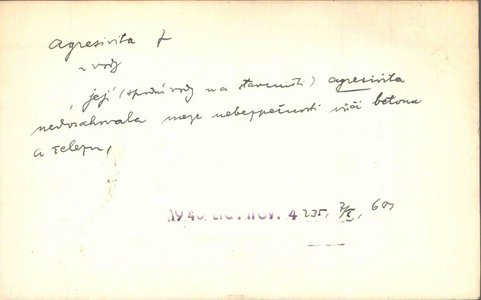 agresivita f
~ vody
, její (spodní vody na staveništi) agresivita
nedosahovala meze nebezpečnosti vůči betonu
a železu,
1940 Lid. nov. 4 235, 7/X,